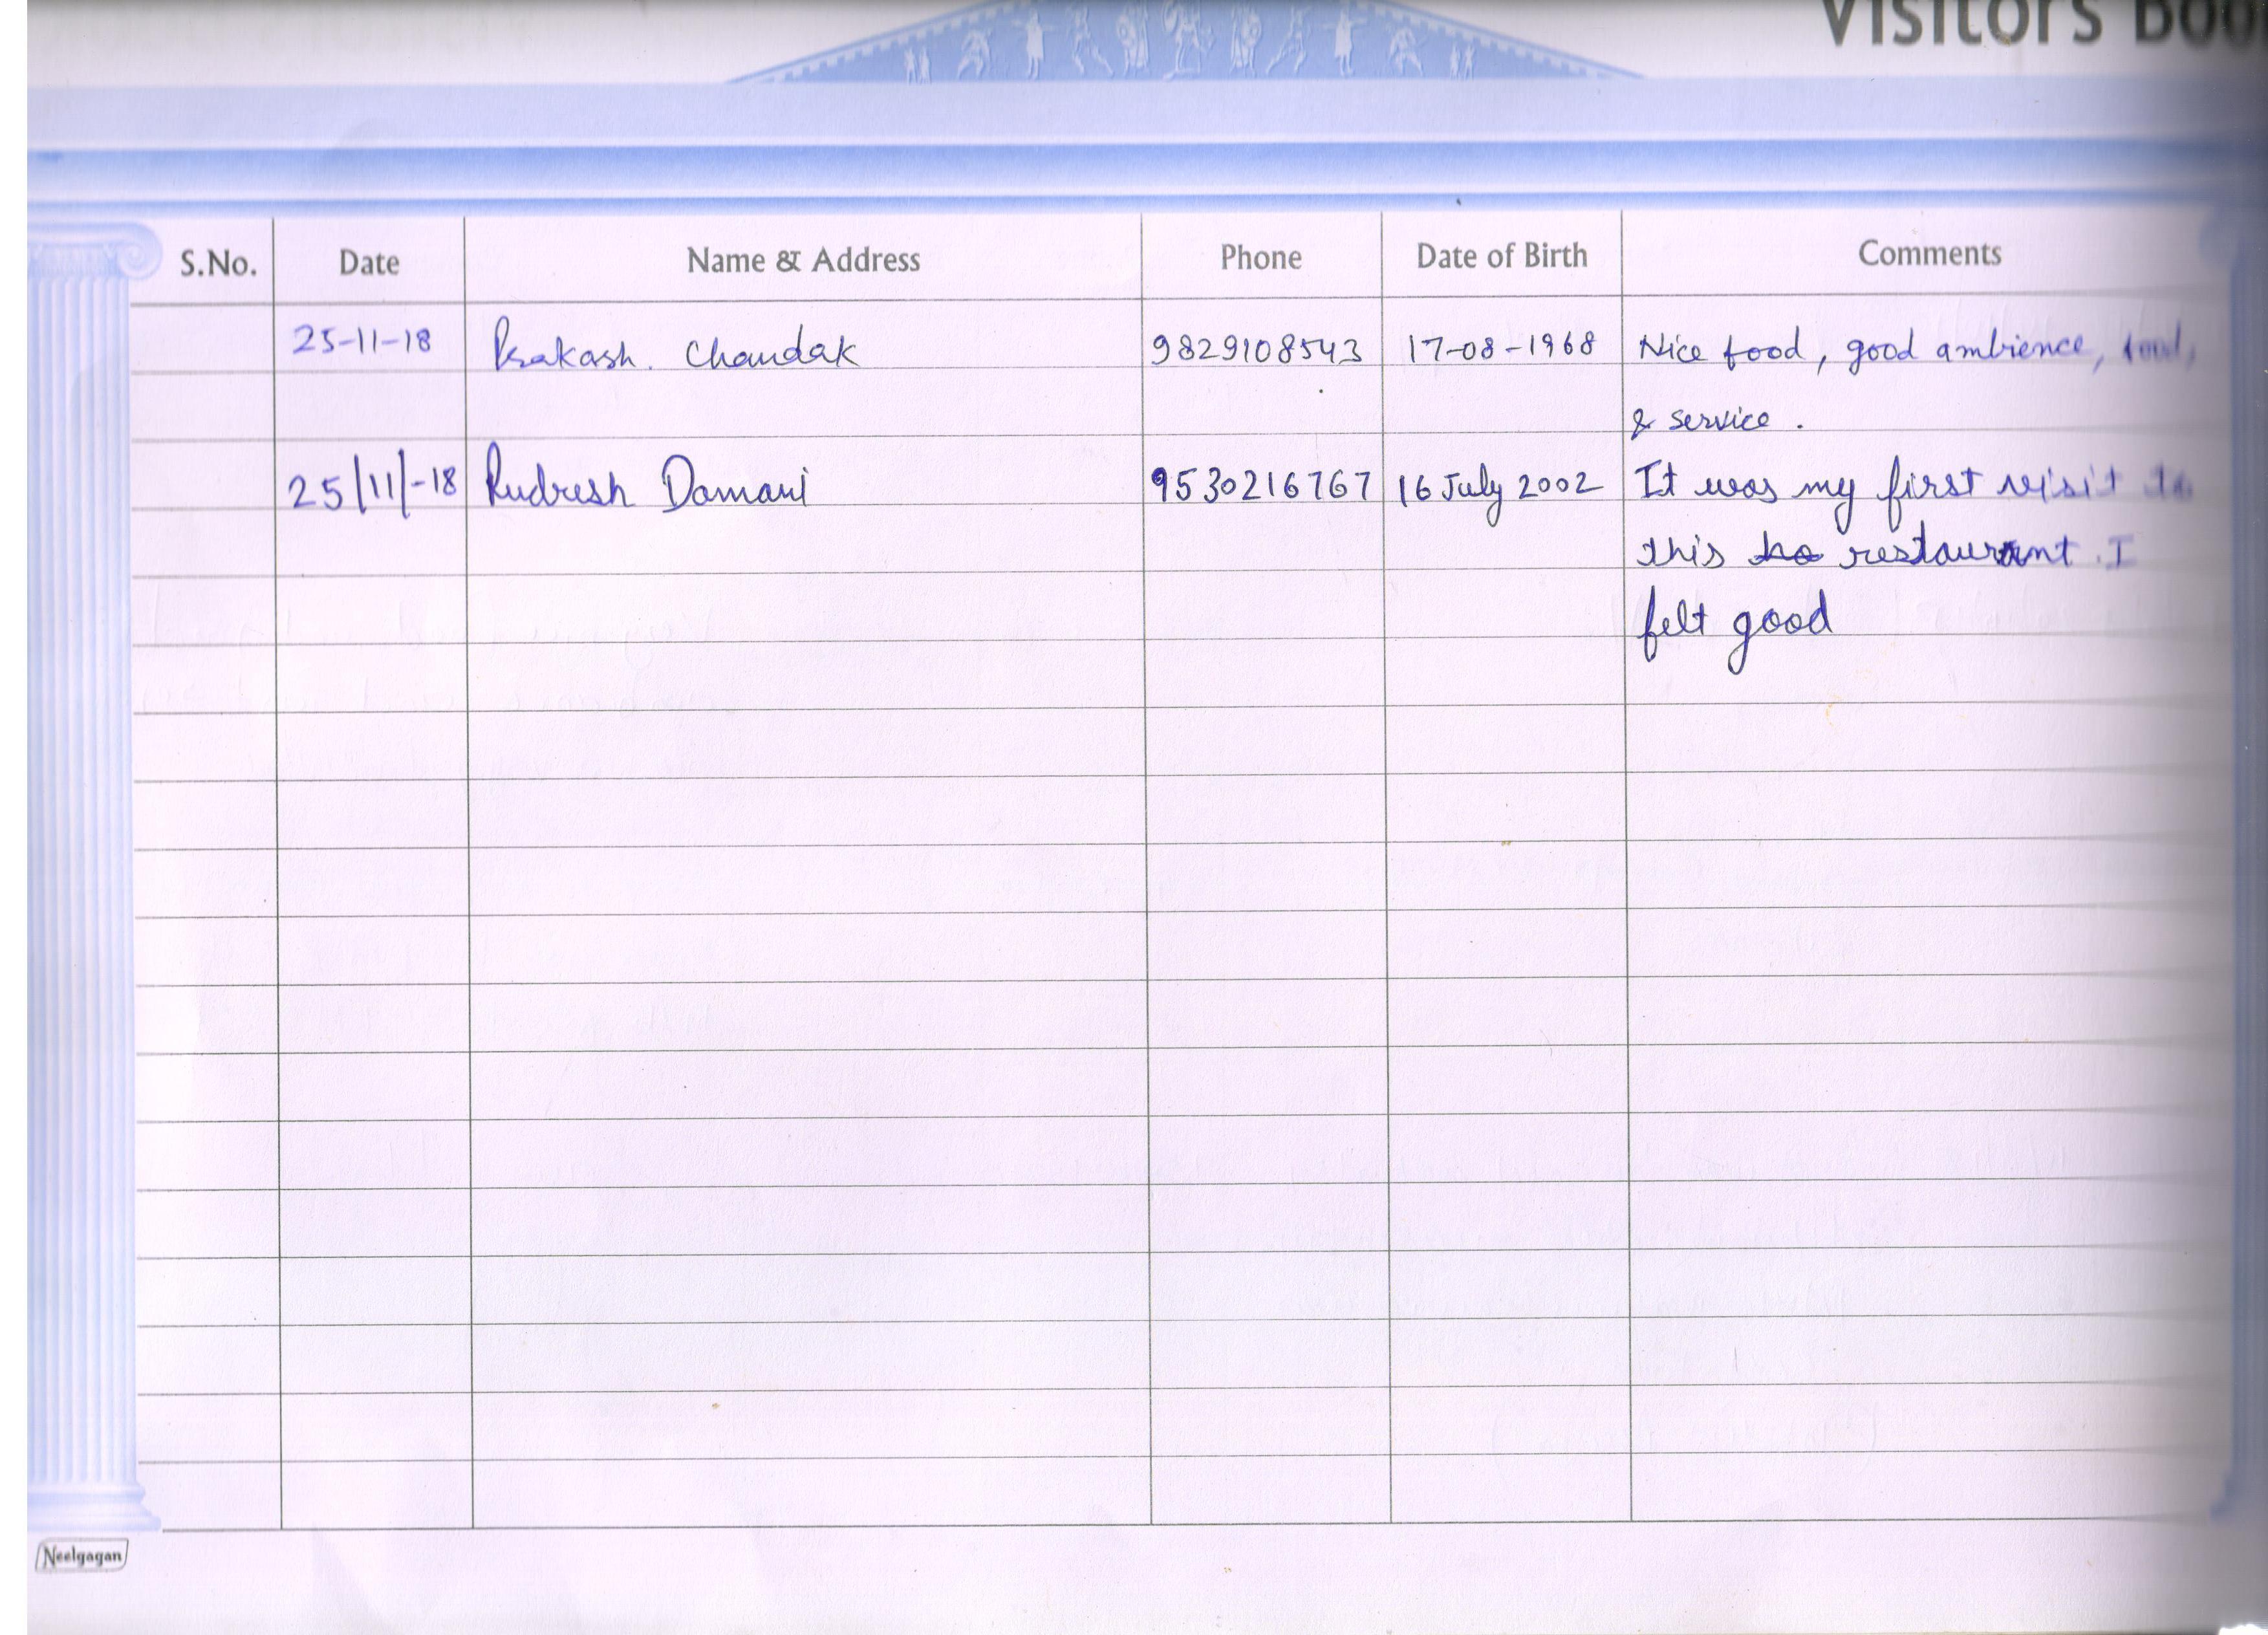 Visitors Boo
S.No. Date Name & Address Phone Date of Birth Comments
25-11-18 Prakash. Chandak 9829108543 17-08-1968 Nice food, good ambience, food,
& service.
25/11/-18 Rudresh Damani 9530216767 16 July 2002 It was my first visit to
this ho restaurant. I
felt good
Neelgagan